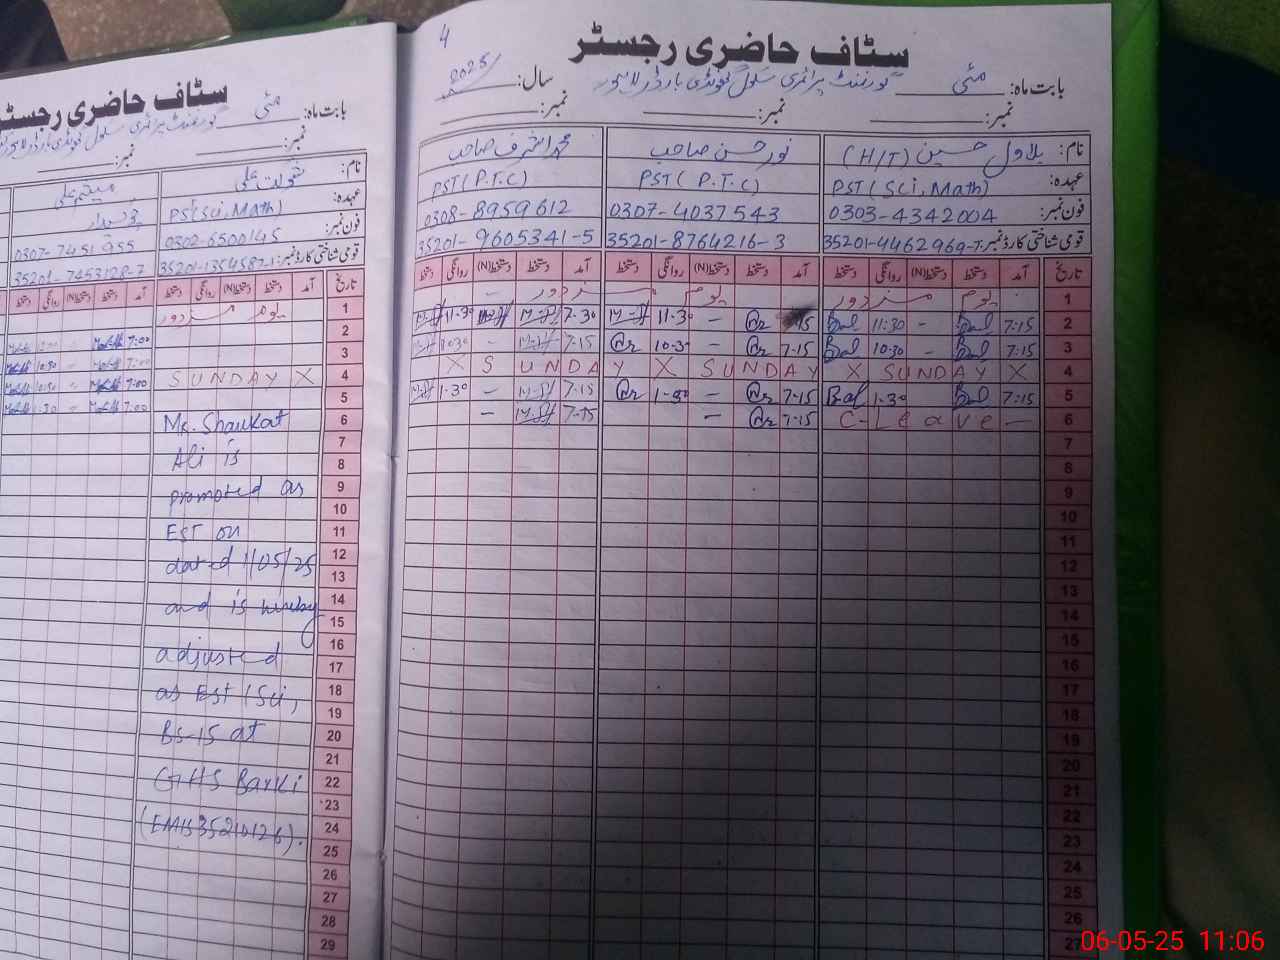 4
سٹاف حاضری رجسٹر
بابت ماہ: مئی گورنمنٹ پرائمری سکول بارڈر لاہور سال: 2025/
نمبر: نمبر: نمبر:
نام: بلاول حسین (H/T) نور حسن صاحب محمد اشرف صاحب
عہدہ: PST (Sci, Math) PST ( P.T.C) PST (P.T.C)
فون نمبر: 0303-4342004 0307-4037543 0308-8959612
قومی شناختی کارڈ نمبر: 35201-4462969-7 35201-8764216-3 35201-9605341-5
تاریخ آمد دستخط دستخط(N) روانگی دستخط آمد دستخط دستخط(N) روانگی دستخط آمد دستخط دستخط(N) روانگی دستخط
1 یوم مزدور یوم مزدور
2 7-15 Bal - 11:30 Bal 15 - 11-30 7-30 11-30
3 7:15 Bal - 10-30 Bal 7-15 - 10-30 7-15 - 10-30
4 X SUNDAY X SUNDAY X SUNDAY X
5 7:15 Bal - 1-30 Bal 7-15 - 1-30 7-15 - 1-30
6 C-Leave - 7-15 - 7-15 -
7
8
9
10
11
12
13
14
15
16
17
18
19
20
21
22
23
24
25
26
27
سٹاف حاضری رجسٹر
بابت ماہ: مئی گورنمنٹ پرائمری سکول
نمبر: نمبر:
نام: شوکت علی
عہدہ: PST(Sci, Math) چوکیدار
فون نمبر: 0302-6500145 0307-7451955
قومی شناختی کارڈ نمبر: 35201-1354587-1 35201-7453128-7
تاریخ آمد دستخط دستخط(N) روانگی دستخط آمد دستخط (N) روانگی دستخط
1 یوم مزدور
2 7:00
3 7:00 10:30
4 SUNDAY X 7:00 10:30
5 7:00 1-30
6 Mr. Shaukat
7
8 Ali is
9 promoted as
10
11 EST on
12 dated 1/05/25
13
14 and is hereby
15
16 adjusted
17
18 as Est (Sci,
19
20 BS-15 at
21
22 GHS Barki
23
24 (EMIS35210126).
25
26
27
28
29
06-05-25 11:06